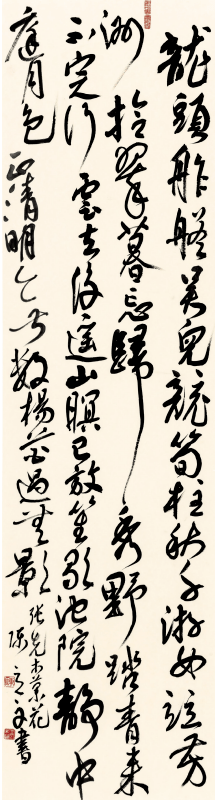 龍頭舴艋吳兒競筍柱秋千游女竝芳
洲拾翠暮忘歸秀野踏青來
不定行雲去後遙山暝已放笙歌池院靜中
庭月色正清明無數楊花過無影
張先木蘭花
陳書